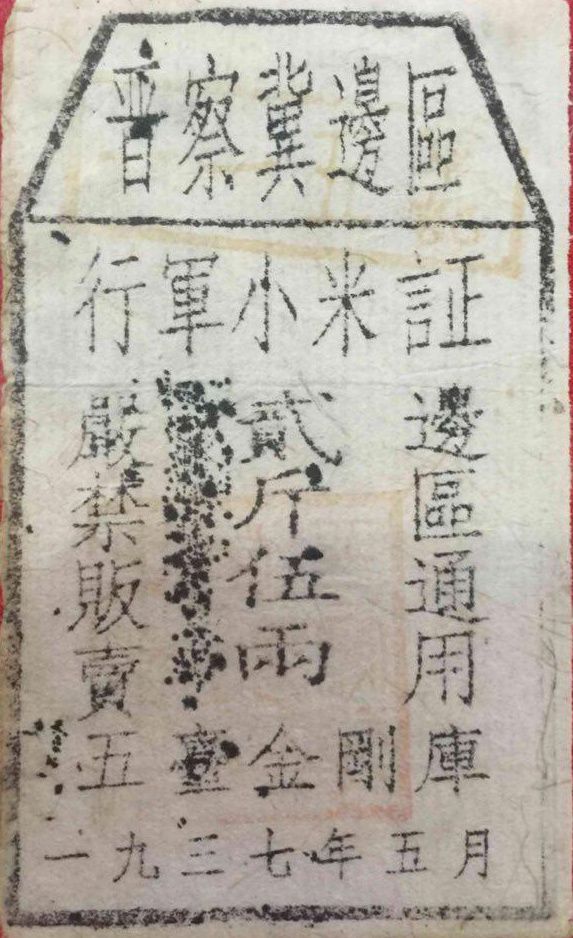 晉察冀邊區
行軍小米証
邊區通用
貳斤伍兩
嚴禁販賣
五臺金剛庫
一九三七年五月